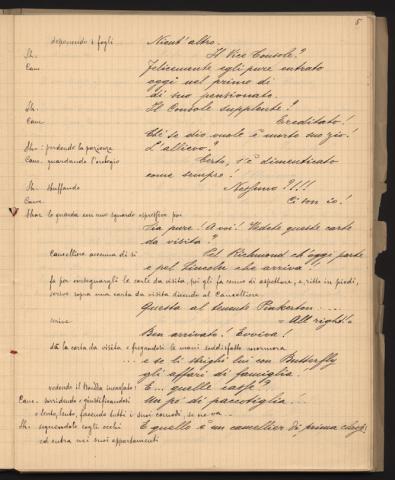 5
deponendo i fogli Nient'altro.
Sh. Il Vice Console?
Canc. Felicemente egli pure entrato
oggi nel primo dì
di suo pensionato.
Sh. Il Console supplente?
Canc. Ereditato!
Chè se dio vuole è morto suo zio!
Sh: perdendo la pazienza L'allievo?
Canc. guardando l'orologio Certo, s'è dimenticato
come sempre!
Sh. sbuffando Nessuno?!!!
Canc. Ci son io!
Shar lo guarda con uno sguardo espressivo poi
Sia pure! A voi! Vedete queste carte
da visita?
Cancelliere accenna di sì Pel Richmond ch'oggi parte
e pel Lincoln che arriva!
fa per consegnargli le carte da visita, poi gli fa cenno di aspettare, e, ritto in piedi,
scrive sopra una carta da visita dicendo al Cancelliere
Questa al tenente Pinkerton ....
scrive = All right! =
Ben arrivato! Evviva!
dà la carta da visita e fregandosi le mani soddisfatto mormora
... e se li strighi lui con Butterfly
gli affari di famiglia!
vedendo il incassato! E... quelle casse?
Canc. sorridendo e giustificandosi Un po' di pacotiglia!
e lento, lento, facendo tutti i suoi comodi, se ne va..
Sh. seguendolo cogli occhi E quello è un cancellier di prima classe!
ed entra nei suoi appartamenti